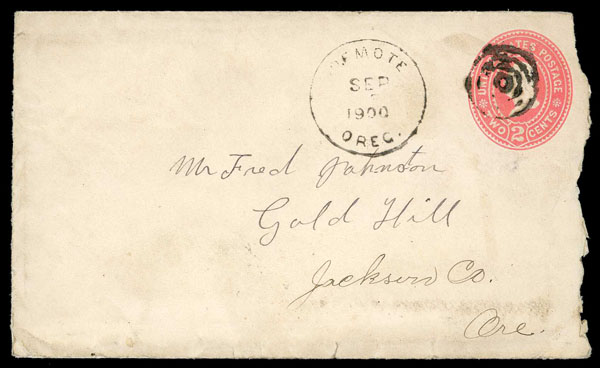 REMOTE
SEP
1900
OREG.
UNITED STATES POSTAGE
TWO 2 CENTS
Mr Fred Johnston
Gold Hill
Jackson Co.
Ore.